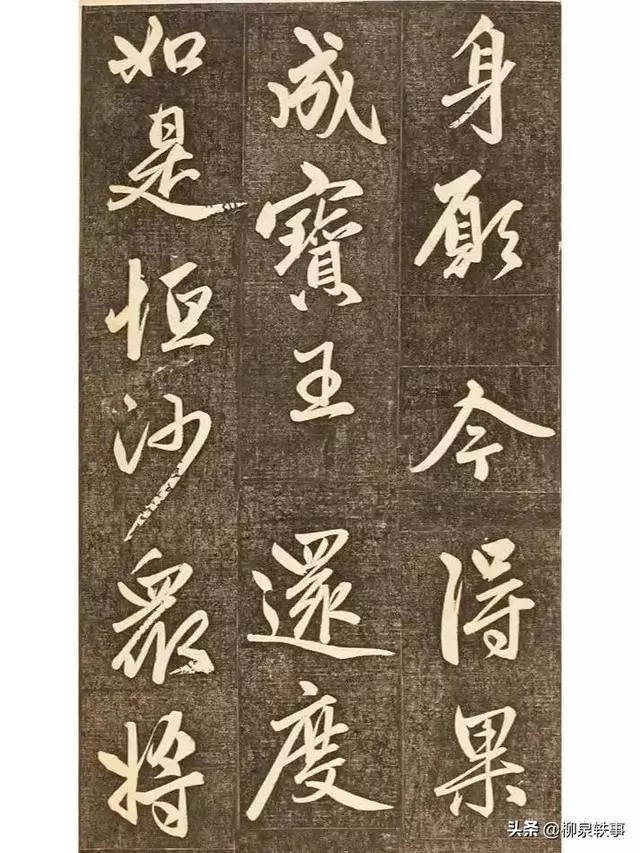 身願今得果
成寶王還度
如是恒沙衆將
头条 @柳泉轶事